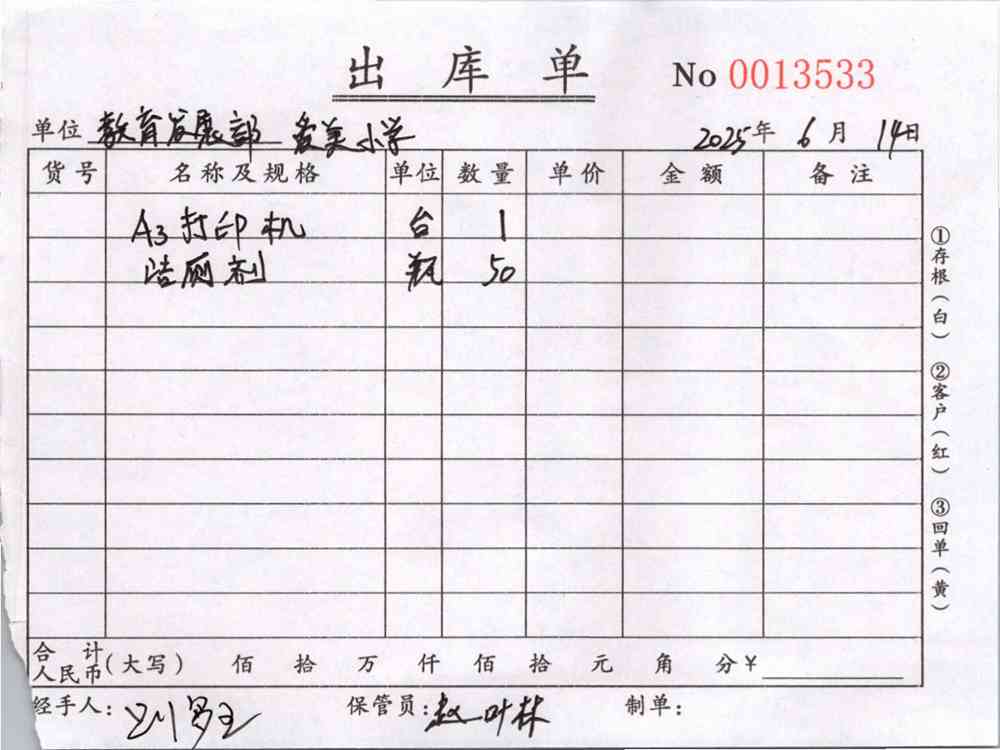 出库单 No 0013533
单位 教育发展部 爱美小学 2025年 6月 14日
货号 名称及规格 单位 数量 单价 金额 备注
A3打印机 台 1
洁厕剂 瓶 50
合计人民币(大写) 佰 拾 万 仟 佰 拾 元 角 分 ¥
经手人: 保管员:赵叶林 制单:
①存根(白) ②客户(红) ③回单(黄)